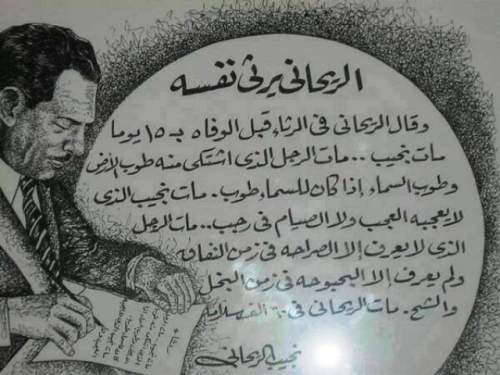 الريحانى يرثى نفسه
وقال الريحانى فى الرثاء قبل الوفاه بـ ١٥ يوما
مات نجيب .. مات الرجل الذى اشتكى منه طوب الأرض
وطوب السماء إذا كان للسماء طوب . مات نجيب الذى
لا يعجبه العجب ولا الصيام فى رجب .. مات الرجل
الذى لا يعرف إلا الصراحه فى زمن النفاق
ولم يعرف إلا البحبوحه فى زمن البخل
والشح . مات الريحانى فى ٦٠ ألف سلامه
نجيب الريحانى